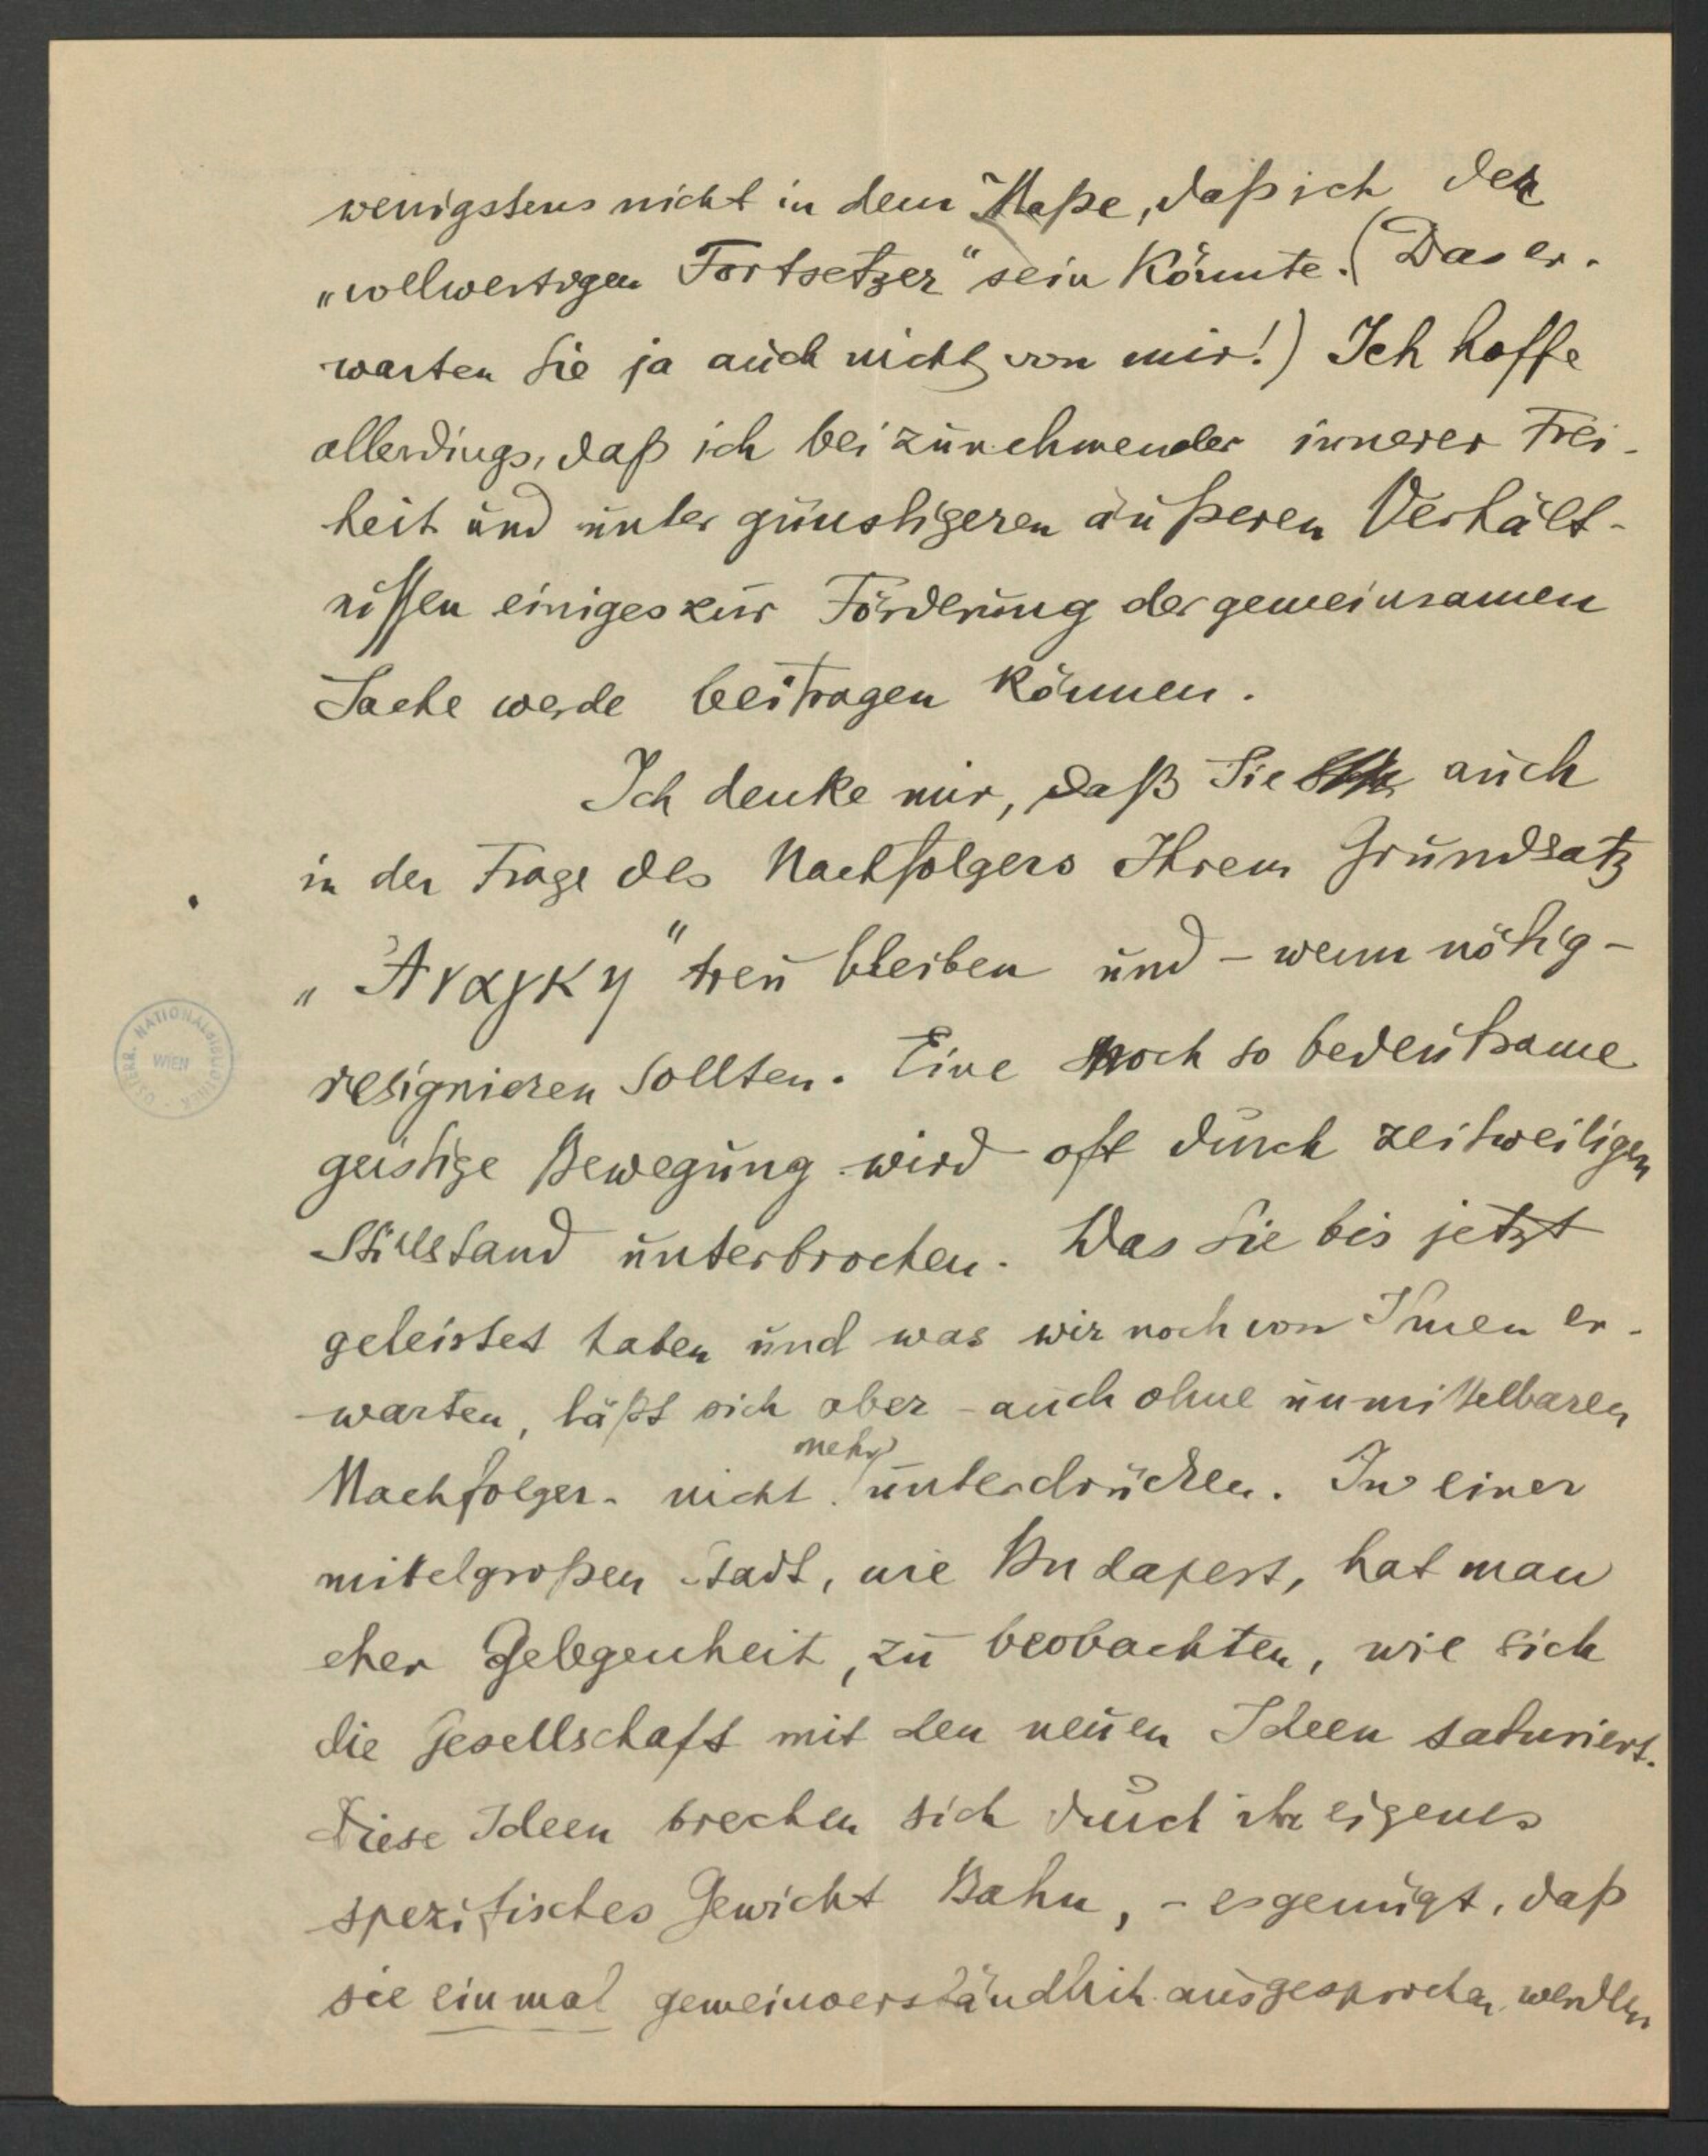 wenigstens nicht in dem Maße, daß ich der
„vollwertigen Fortsetzer“ sein könnte. (Das er-
warten Sie ja auch nicht von mir!) Ich hoffe
allerdings, daß ich bei zunehmender innerer Frei-
heit und unter günstigeren äußeren Verhält-
nissen einiges zur Förderung der gemeinsamen
Sache werde beitragen können.
Ich denke mir, daß Sie auch
in der Frage des Nachfolgers Ihrem Grundsatz
„Ἀναγκη“ treu bleiben und – wenn nötig –
resignieren sollten. Eine noch so bedeutsame
geistige Bewegung wird oft durch zeitweiligen
Stillstand unterbrochen. Was Sie bis jetzt
geleistet haben und was wir noch von Ihnen er-
warten, läßt sich aber – auch ohne unmittelbaren
Nachfolger – nicht mehr unterdrücken. In einer
mittelgroßen Stadt, wie Budapest, hat man
eher Gelegenheit, zu beobachten, wie sich
die Gesellschaft mit den neuen Ideen saturiert.
Diese Ideen brechen sich durch ihr eigenes
spezifisches Gewicht Bahn, – es genügt, daß
sie einmal gemeinverständlich ausgesprochen werden
ÖSTERR. NATIONALBIBLIOTHEK WIEN